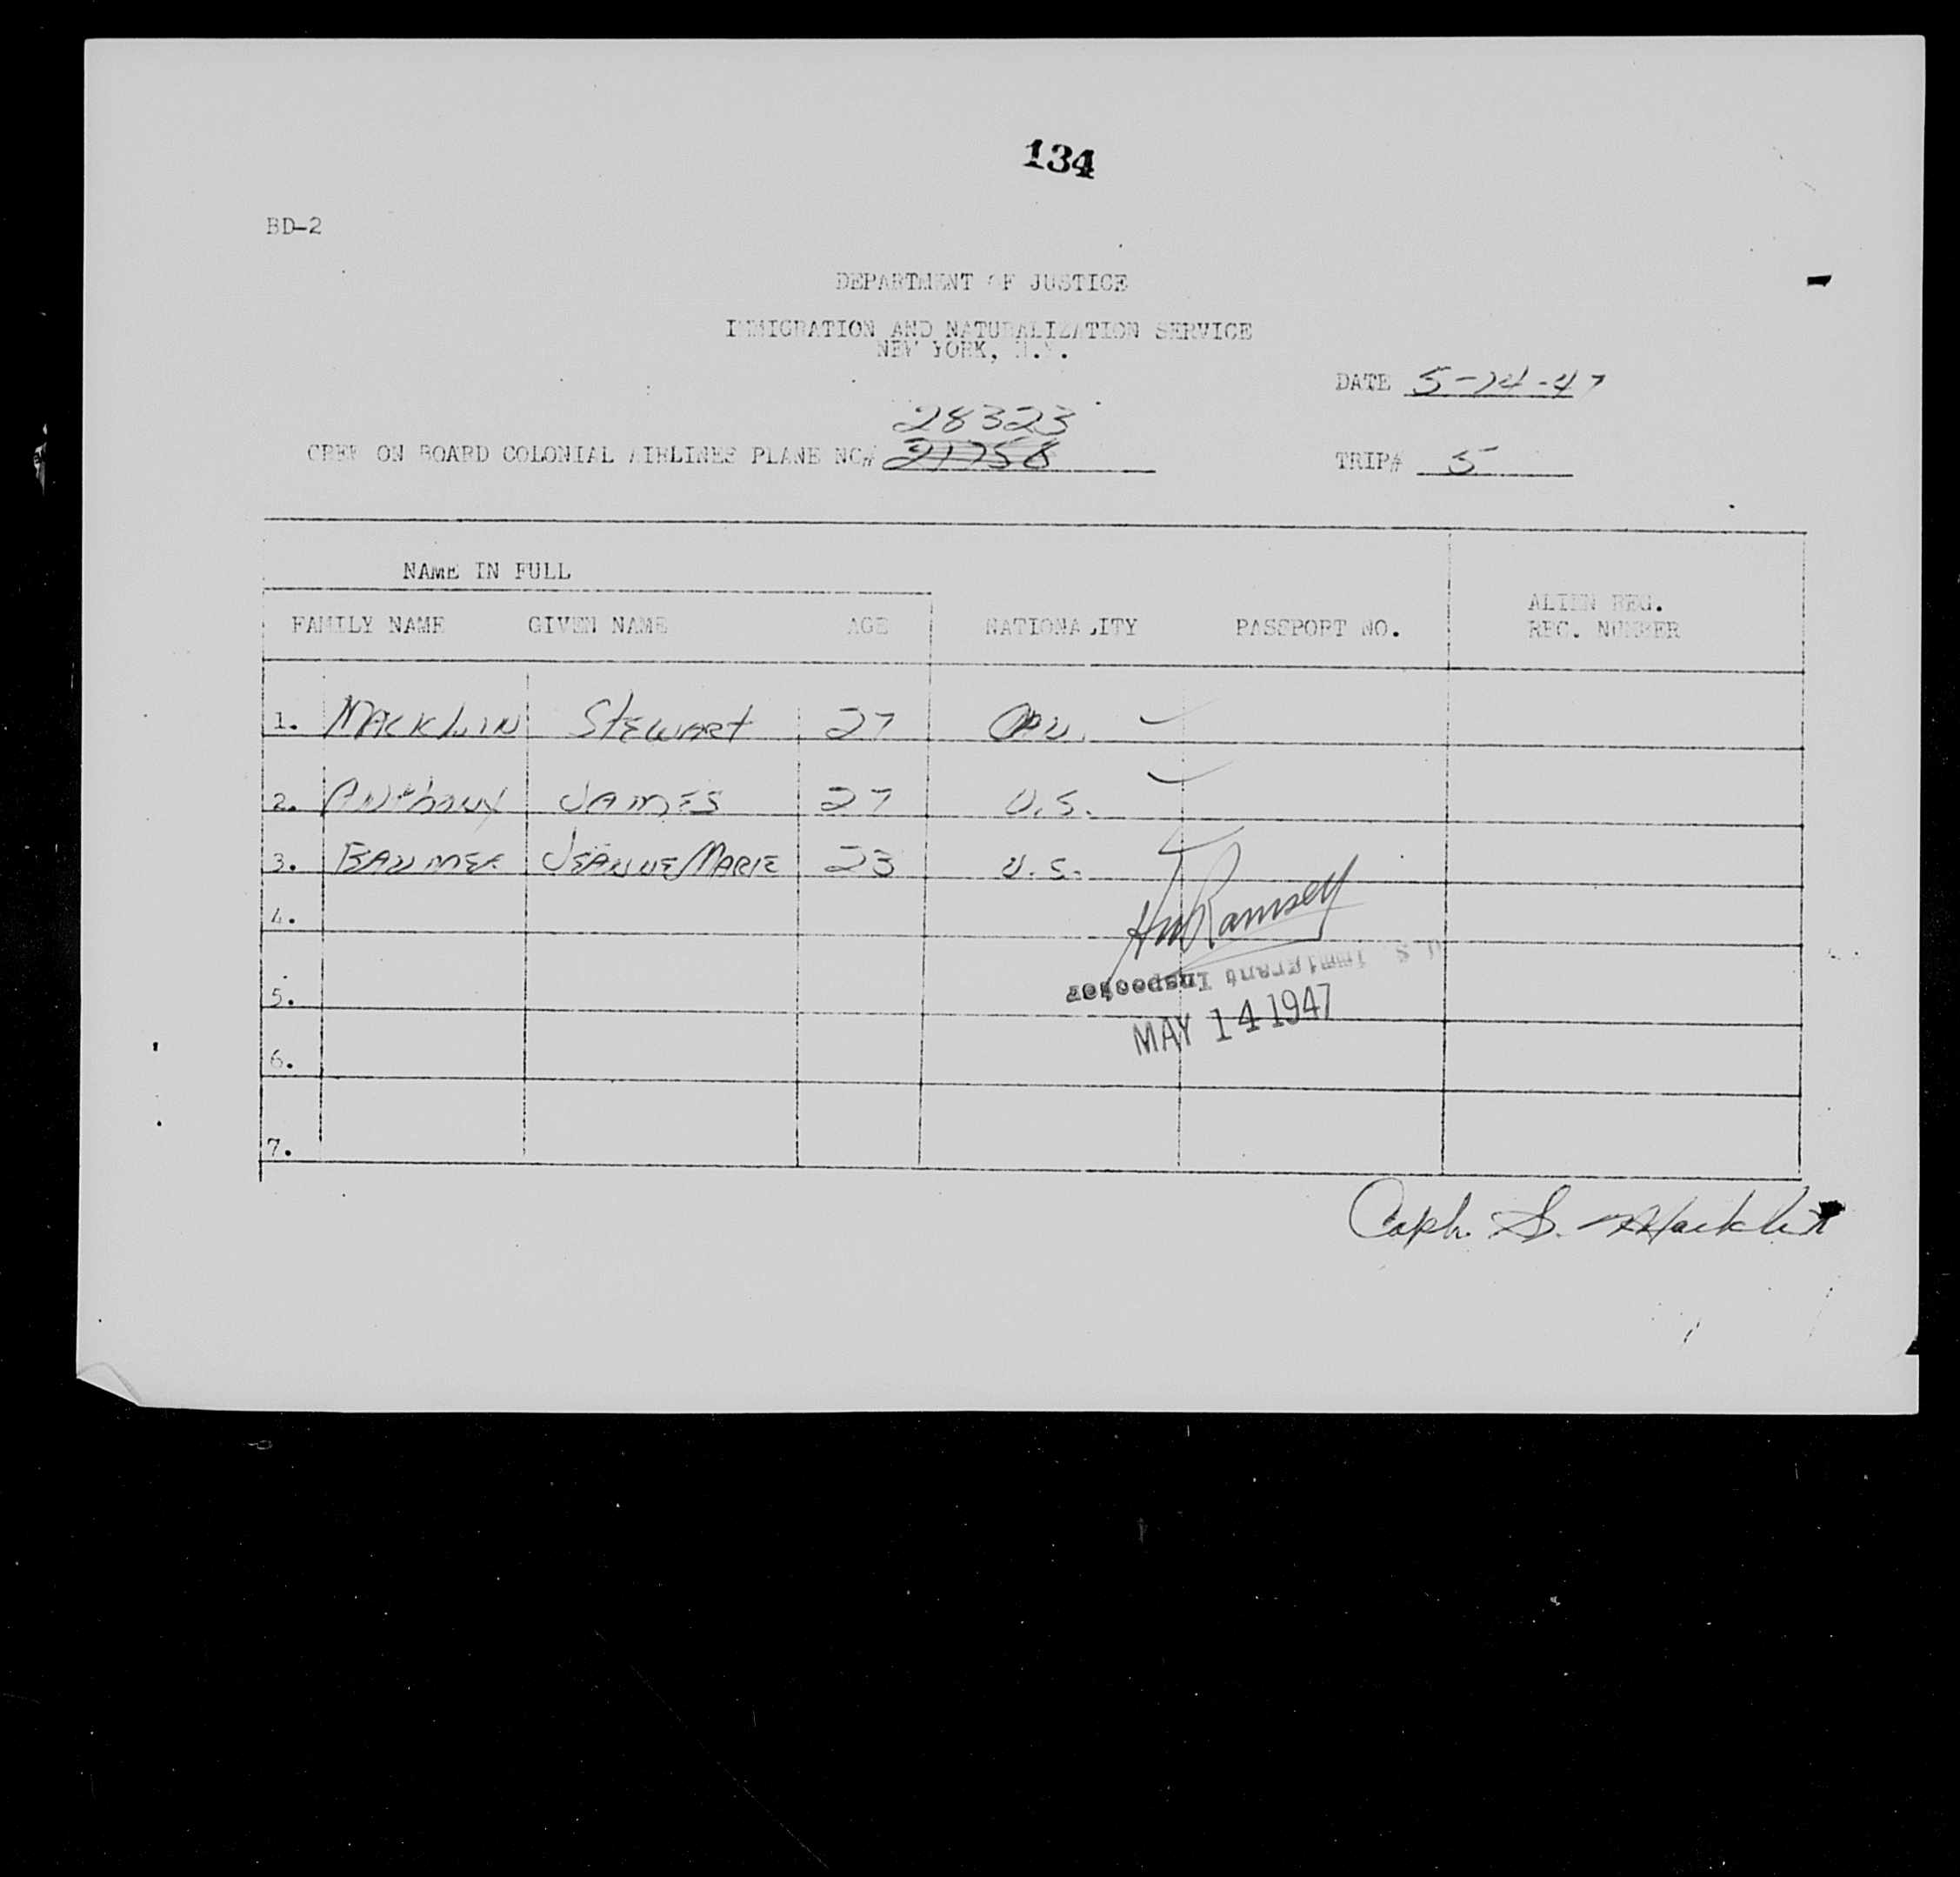 134
BD-2
DEPARTMENT OF JUSTICE
IMMIGRATION AND NATURALIZATION SERVICE
NEW YORK, N.Y.
DATE 5-14-47
28323
CREW ON BOARD COLONIAL AIRLINES PLANE NO# 21758
TRIP# 5
NAME IN FULL
FAMILY NAME GIVEN NAME AGE NATIONALITY PASSPORT NO. ALIEN REG. REC. NUMBER
1. MACKLIN STEWART 27
2. ANTHONY JAMES 27 U.S.
3. BAUMER JEANNE MARIE 23 U.S.
4.
HW Ramsey
U.S. Immigrant Inspector
5.
MAY 14 1947
6.
7.
Capt. S. Macklin